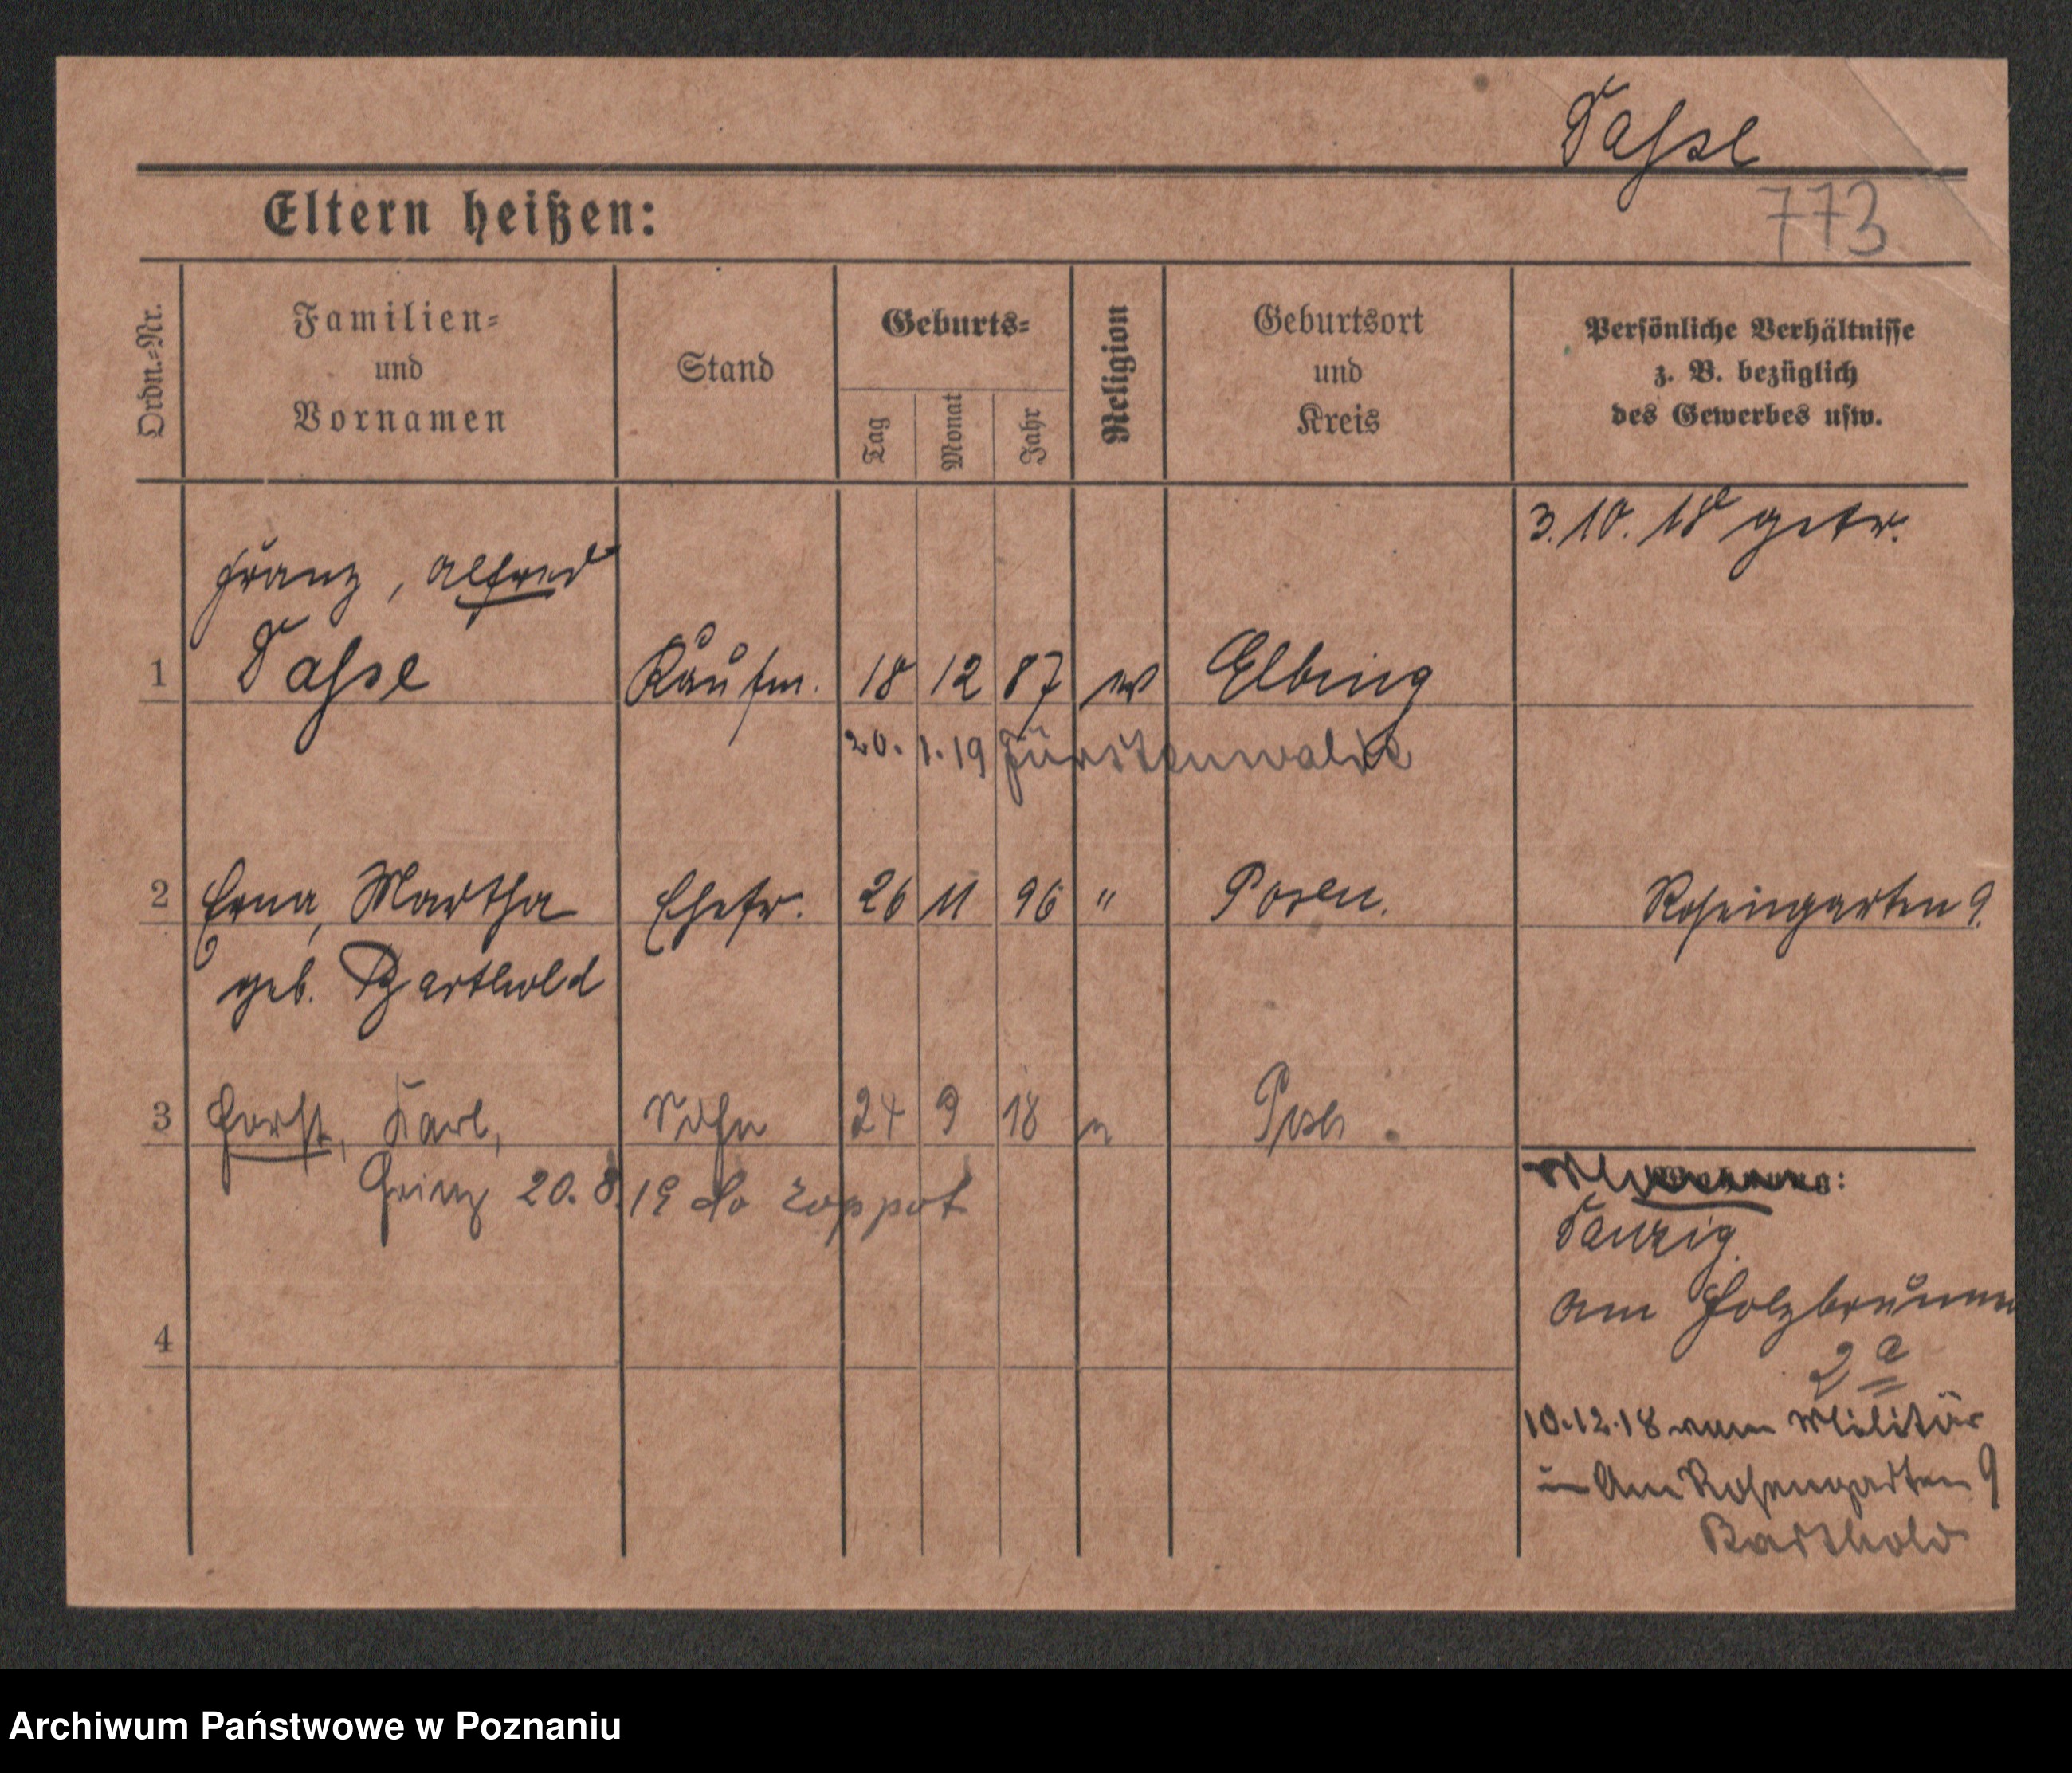 Tasse
773
Eltern heißen:
Ordn.-Nr.
Familien- und Vornamen
Stand
Geburts-
Tag
Monat
Jahr
Religion
Geburtsort und Kreis
Persönliche Verhältnisse
z. B. bezüglich
des Gewerbes usw.
3.10.18 getr.
Franz, Alfred
1 Tasse Kaufm. 18 12 87 Elbing
20. 1. 19 Fürstenwalde
2 Erna, Martha Ehefr. 26 11 96 " Posen. Rosengarten 9.
geb. Barthold
3 Horst, Karl, Sohn 24 9 18 Posen
Heinz 20. 8. 19 do Zoppot
Danzig.
am Holzbrunnen
4
2 a
10.12.18 vom Militär
Am Rosengarten 9
Barthold
Archiwum Państwowe w Poznaniu